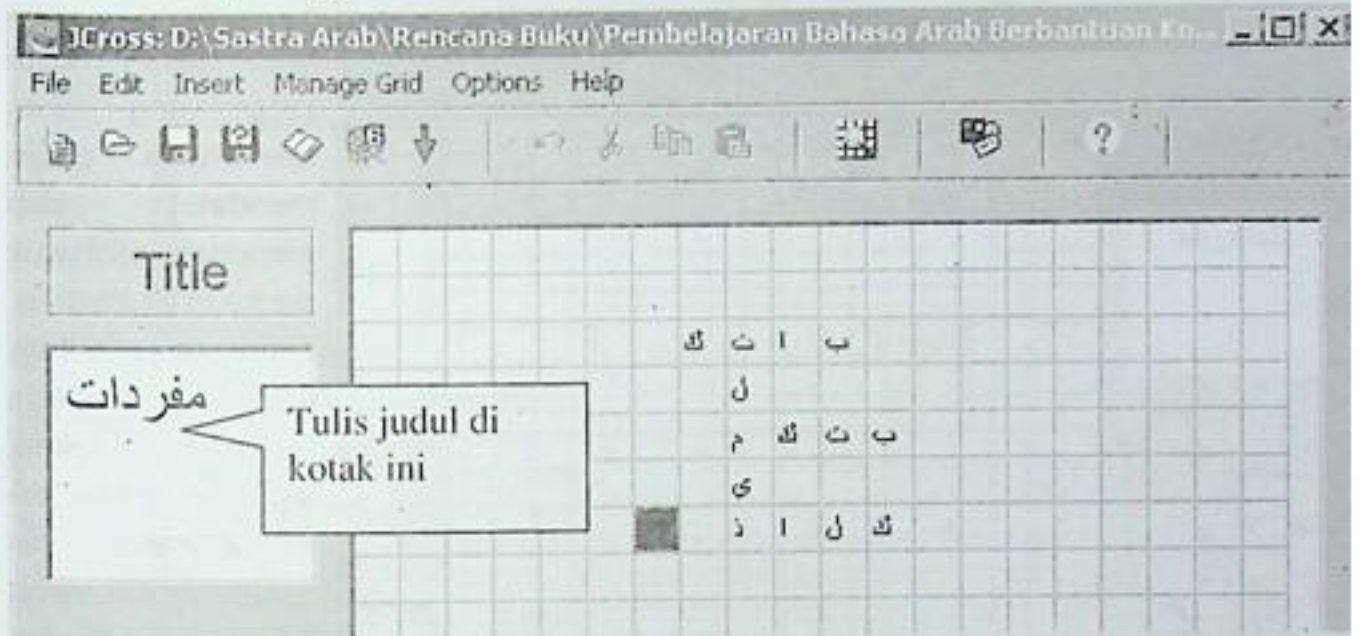 JCross: D:\Sastra Arab\Rencana Buku\Pembelajaran Bahasa Arab Berbantuan Ko...
File Edit Insert Manage Grid Options Help
Title
مفردات
Tulis judul di
kotak ini
ك ت ا ب
ل
م ك ت ب
ى
ذ ا ل ك